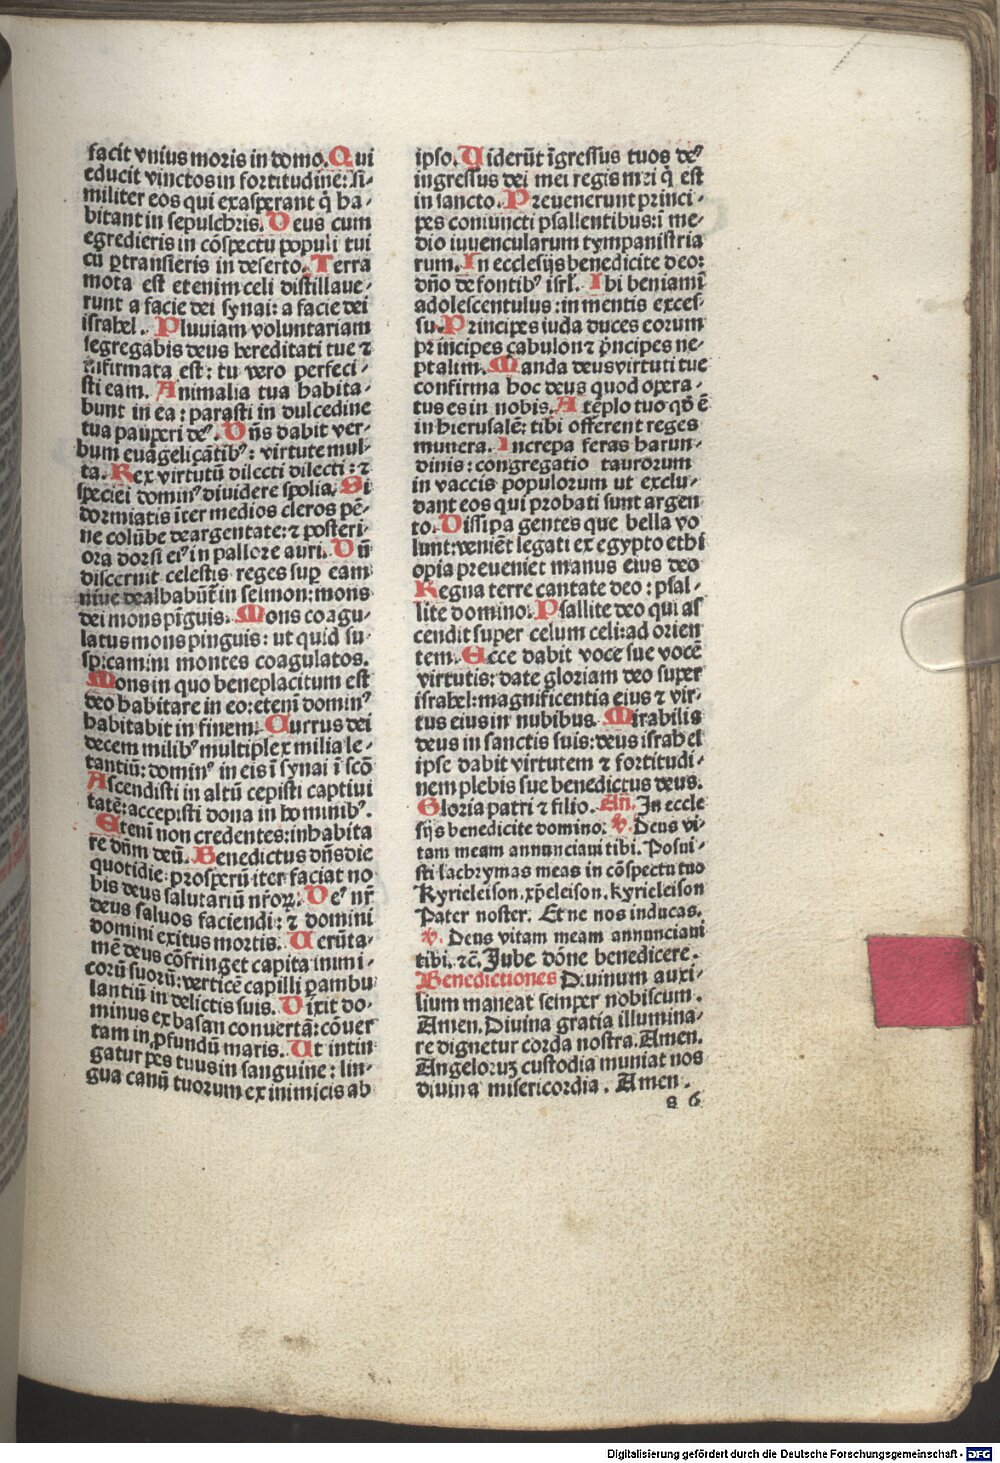 facit vnius moris in domo. Qui
educit vinctos in fortitudine: si⸗
militer eos qui exasperant q̄ ha⸗
bitant in sepulchris. Deus cum
egredieris in cōspectu populi tui
cū ꝑtransieris in deserto. Terra
mota est etenim celi distillaue⸗
runt a facie dei synai: a facie dei
israhel. Pluuiam voluntariam
segregabis deus hereditati tue ⁊
infirmata est: tu vero perfeci⸗
sti eam. Animalia tua habita⸗
bunt in ea: parasti in dulcedine
tua pauꝑeri deꝰ. Dn̄s dabit ver⸗
bum euāgeliçātibꝰ: virtute mul⸗
ta. Rex virtutū dilecti dilecti: ⁊
speciei dominꝰ diuidere spolia. Si
dormiatis īter medios cleros pē⸗
ne colūbe deargentate: ⁊ posteri⸗
ora dorsi eiꝰ in pallore auri. Dū
discernit celestis reges suꝑ eam
niue dealbabūt̄ in selmon: mons
dei mons pīguis. Mons coagu⸗
latus mons pinguis: ut quid su⸗
spicamini montes coagulatos.
Mons in quo beneplacitum est
deo habitare in eo: etenī dominꝰ
habitabit in finem. Currus dei
decem milibꝰ multiplex milia le⸗
tantiū: dominꝰ in eis ī synai ī scō
Ascendisti in altū cepisti captiui
tatē: accepisti dona in hominibꝰ.
Etenī non credentes: inhabita
re dn̄m deū. Benedictus dn̄s die
quotidie: prosꝑerū iter faciat no
bis deus salutariū nr̄oꝝ. Deꝰ nr̄
deus saluos faciendi: ⁊ domini
domini exitus mortis. Uerūta⸗
mē deus cōfringet capita inimi⸗
corū suorū: verticē capilli ꝑambu
lantiū in delictis suis. Dixit do⸗
minus ex basan conuertā: cōuer
tam in ꝓfundū maris. Ut intin
gatur pes tuus in sanguine: lin⸗
gua canū tuorum ex inimicis ab
ipso. Uiderūt īgressus tuos deꝰ
ingressus dei mei regis mei q̄ est
in sancto. Preuenerunt princi⸗
pes coniuncti psallentibus: ī me⸗
dio iuuencularum tympanistria
rum. In ecclesijs benedicite deo:
dn̄o de fontibꝰ isrl̄. Ibi beniamī
adolescentulus: in mentis exces⸗
su. Principes iuda duces eorum
principes çabulon ⁊ p̄ncipes ne⸗
ptalim. Manda deus virtuti tue
confirma hoc deus quod opera⸗
tus es in nobis. A tēplo tuo qd̄ ē
in hierusalē: tibi offerent reges
munera. Increpa feras harun⸗
dinis: congregatio taurorum
in vaccis populorum ut exclu⸗
dant eos qui probati sunt argen
to. Dissipa gentes que bella vo
lunt: veniēt legati ex egypto ethi
opia preueniet manus eius deo
Regna terre cantate deo: psal⸗
lite domino. Psallite deo qui as
cendit super celum celi: ad orien
tem. Ecce dabit voce sue vocē
virtutis: date gloriam deo super
israhel: magnificentia eius ⁊ vir⸗
tus eius in nubibus. Mirabilis
deus in sanctis suis: deus israhel
ipse dabit virtutem ⁊ fortitudi⸗
nem plebis sue benedictus deus.
Gloria patri ⁊ filio. An̄. In eccle
sijs benedicite domino. ℣. Deus vi⸗
tam meam annunciaui tibi. Posui⸗
sti lachrymas meas in cōspectu tuo
Kyrieleison. xp̄eleison. kyrieleison
Pater noster. Et ne nos inducas.
℣. Deus vitam meam annunciaui
tibi. ⁊c̄. Jube dōne benedicere.
Benedictiones Diuinum auxi⸗
lium maneat semper nobiscum.
Amen. Diuina gratia illumina⸗
re dignetur corda nostra. Amen.
Angeloruꝫ custodia muniat nos
diuina misericordia. Amen.
s 6
Digitalisierung gefördert durch die Deutsche Forschungsgemeinschaft - DFG